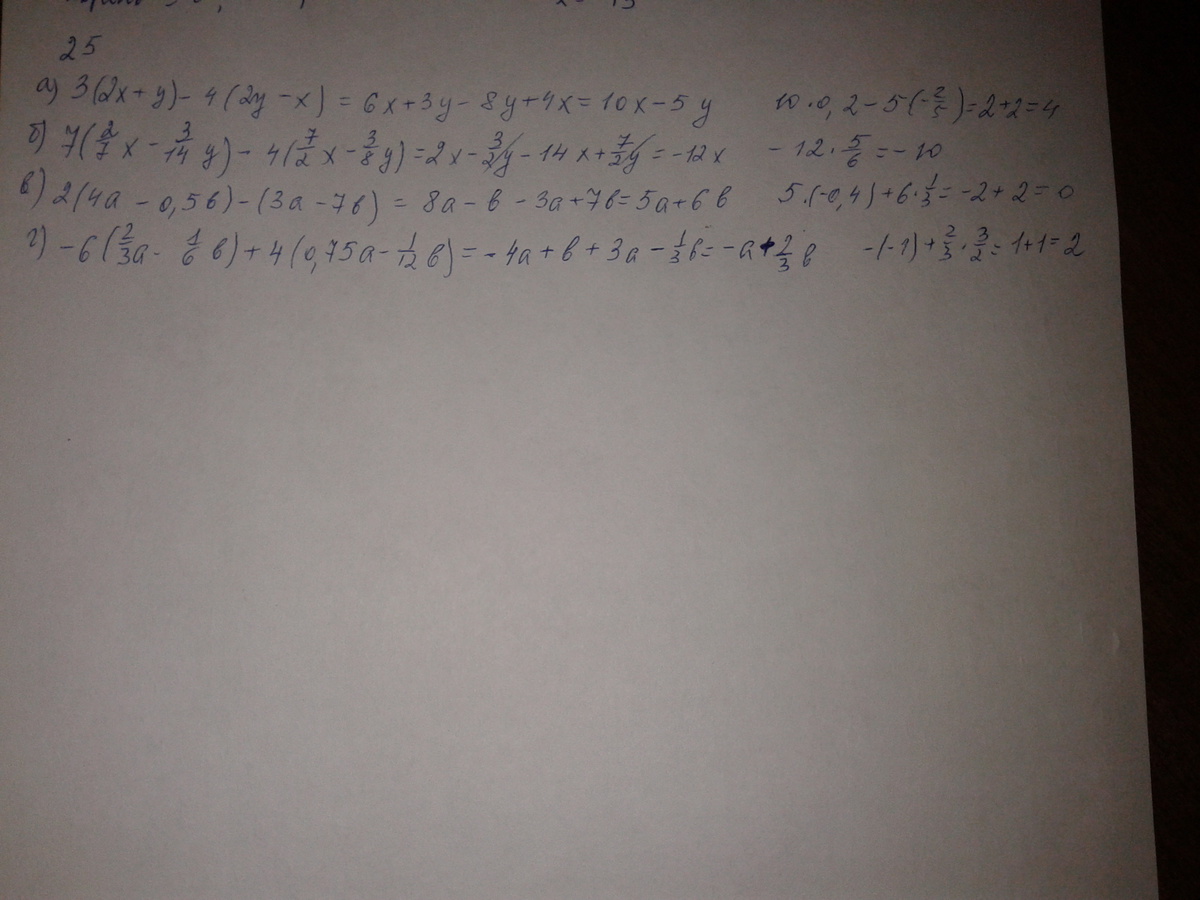 25
а) 3(2x+y)-4(2y-x)=6x+3y-8y+4x=10x-5y 10·0,2-5(-2/5)=2+2=4
б) 7(2/7x-3/14y)-4(7/2x-3/8y)=2x-3/2y-14x+7/2y=-12x -12·5/6=-10
в) 2(4a-0,5в)-(3a-7в)=8a-в-3a+7в=5a+6в 5·(-0,4)+6·1/3=-2+2=0
г) -6(2/3a-1/6в)+4(0,75a-1/12в)=-4a+в+3a-1/3в=-a+2/3в -(-1)+2/3·3/2=1+1=2